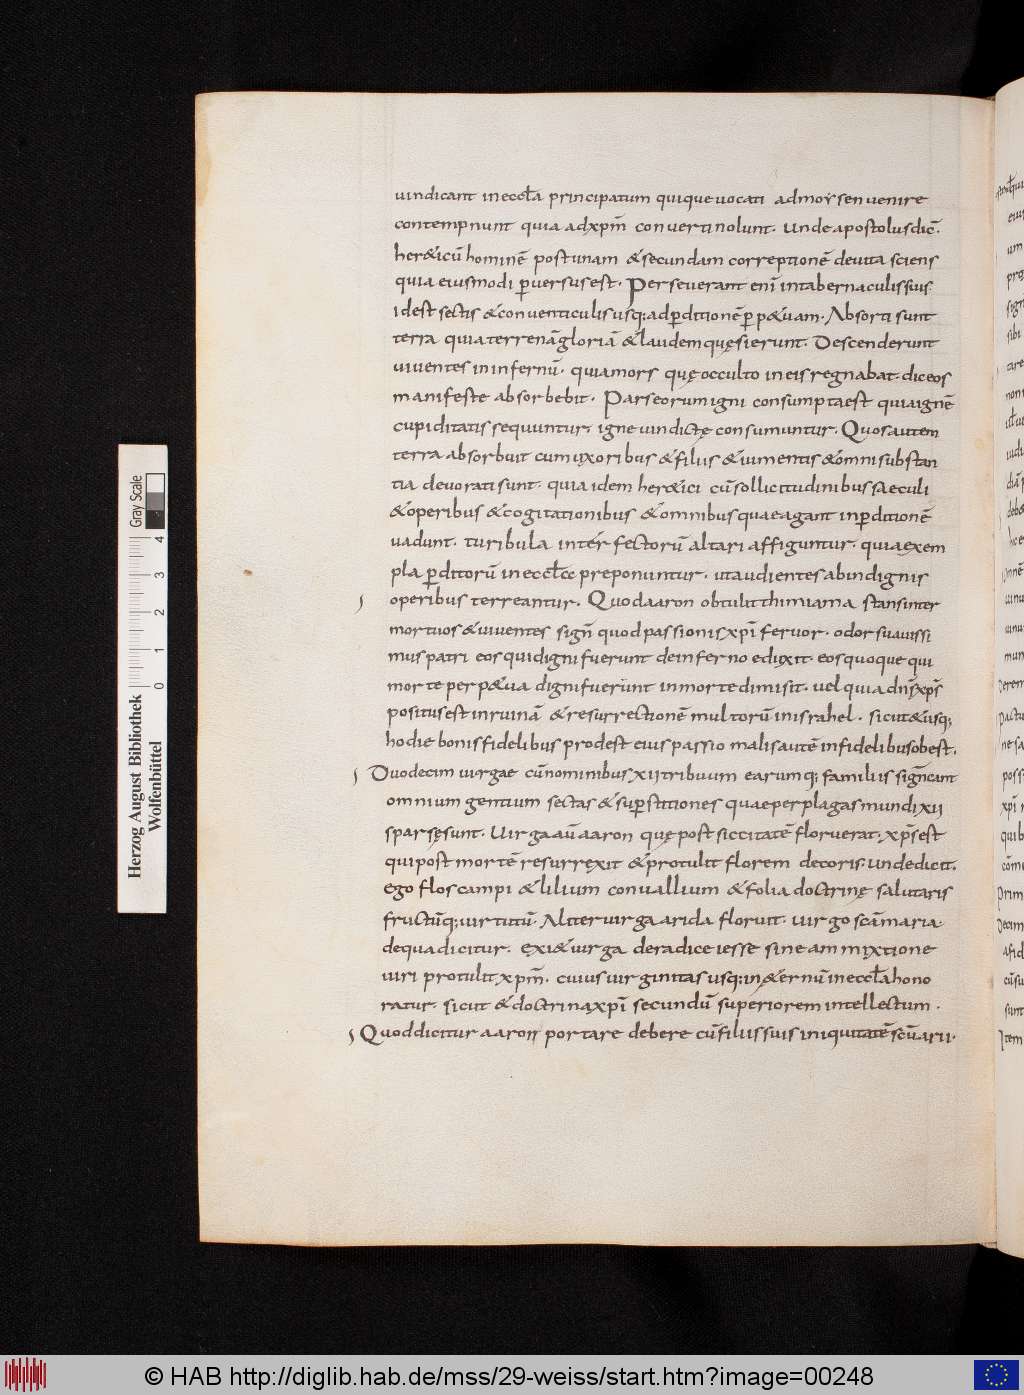 uindicant in eccl̄a principatum quique uocati ad moysen uenire
contempnunt quia ad xpm̄ conuerti nolunt. Unde apostolus dic̄.
her&icū hominē post unam & secundam correptionē deuita sciens
quia eiusmodi p̱uersus est. Perseuerant enī in tabernaculis suis
id est sectis & conuenticulis usq; ad p̱ditionē p̱p&uam. Absorti sunt
terra quia terrenā gloriā & laudem quęsierunt. Descenderunt
uiuentes in infernū. quia mors quę occulto in eis regnabat. dic eos
manifeste absorbebit. Pars eorum igni consumpta est quia ignē
cupiditatis sequuntur. igne uindictę consumuntur. Quos autem
terra absorbuit cum uxoribus & filiis & iumentis & omni substan
tia deuorati sunt. quia idem her&ici cū sollicitudinibus saeculi
& operibus & cogitationibus & omnibus quae agant in p̱ditionē
uadunt. turibula interfectorū altari affiguntur. quia exem
pla p̱ditorū in eccl̄ce preponuntur. ut audientes ab indignis
operibus terreantur. Quod aaron obtulit thimiama stans inter
mortuos & uiuentes sign̄ quod passionis xpī feruor. odor suauissi
mus patri eos qui digni fuerunt de inferno eduxit. eos quoque qui
morte perp&ua digni fuerunt in morte dimisit. uel quia dn̄s xps̄
positus est in ruinā & resurrectionē multorū in israhel. sicut & usq;
hodie bonis fidelibus prodest eius passio malis autē infidelibus obest.
Duodecim uirgae cū nominibus xii tribuum earumq; familiis sign̄cant
omnium gentium sectas & sup̱stitiones quae per plagas mundi xii
sparsę sunt. Uirga aū aaron quę post siccitatē floruerat. xps̄ est
qui post mortē resurręxit & protulit florem decoris. unde dicit.
ego flos campi & lilium conuallium & folia doctrinę salutaris
fructūq; uirtutū. Aliter uirga arida floruit. uirgo scā maria
de qua dicitur. exi& uirga de radice iesse sine ammixtione
uiri protulit xpm̄. cuius uirginitas usq; in &ernū in eccl̄a hono
ratur. sicut & doctrina xpī secundū superiorem intellectum.
Quod dicitur aaron portare debere cū filiis suis iniquitatē scūarii.
Gray Scale
0 1 2 3 4
Herzog August Bibliothek
Wolfenbüttel
© HAB http://diglib.hab.de/mss/29-weiss/start.htm?image=00248